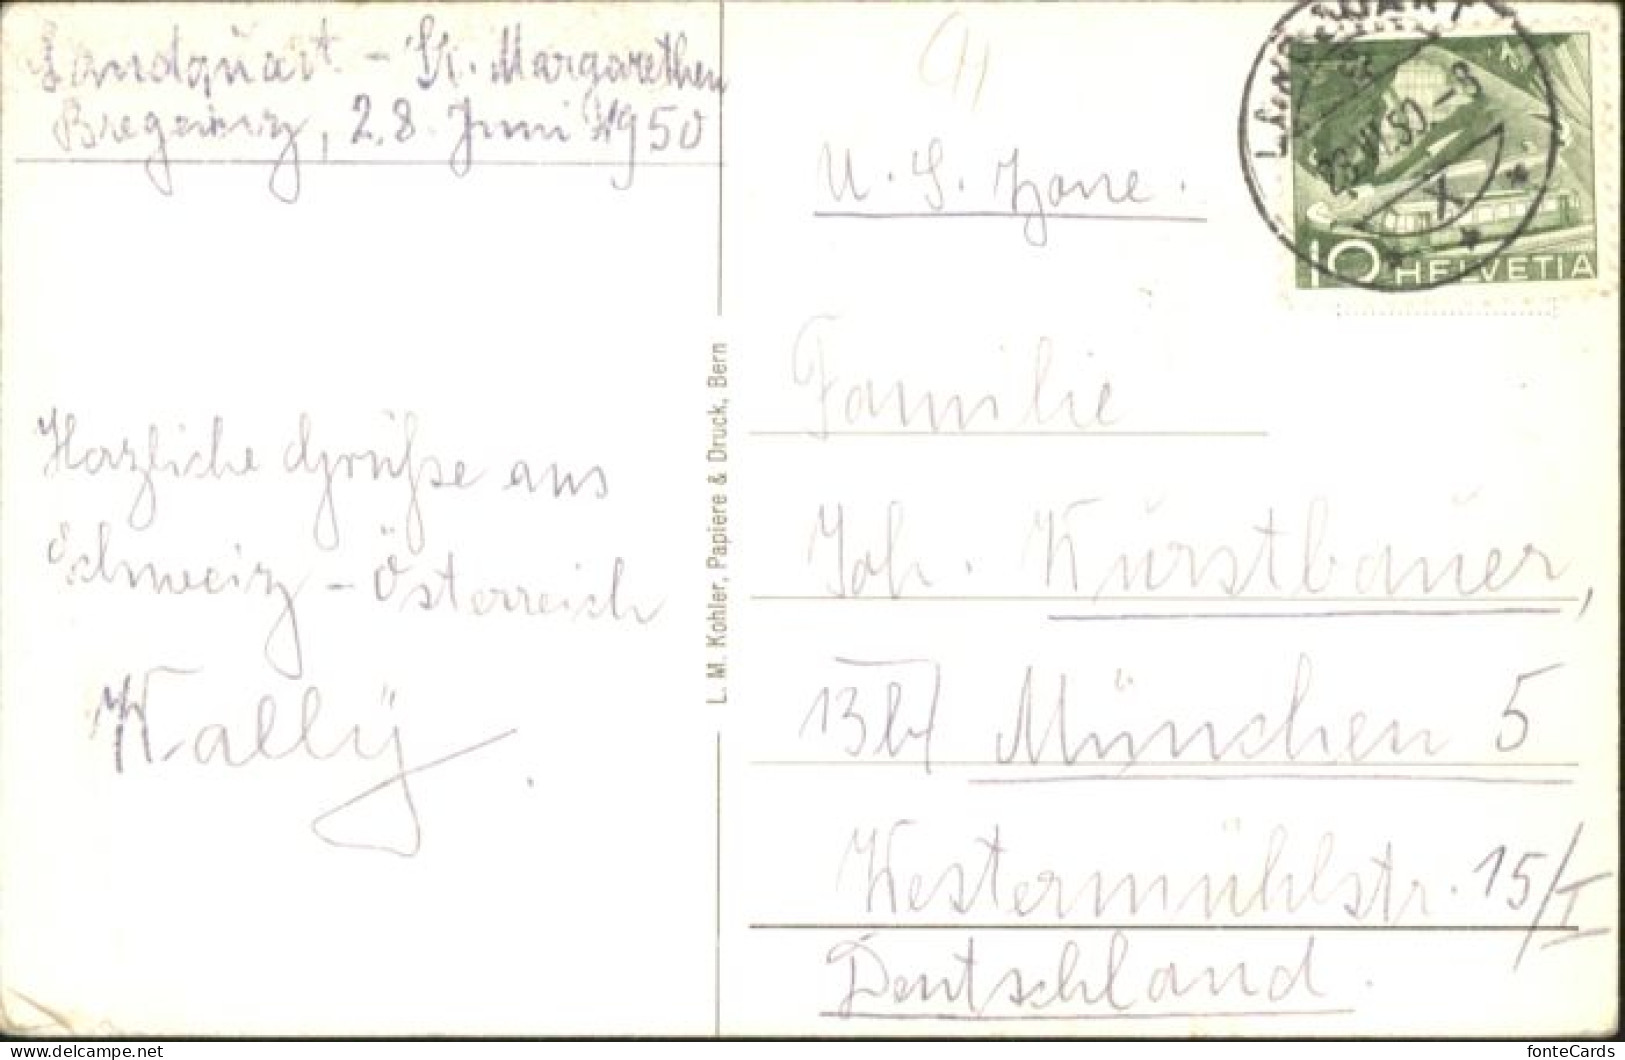 Landquart - St. Margarethen
Bregenz, 28. Juni 1950
Herzliche Grüße aus
Schweiz - Österreich
Wally.
L. M. Kohler, Papiere & Druck, Bern
U. S. Zone.
LANDQUART
28.VI.50.-8
X
10 HELVETIA
Familie
Joh. Kürstbauer,
13b/ München 5
Westermühlstr. 15/I
Deutschland.
www.delcampe.net
fonteCards